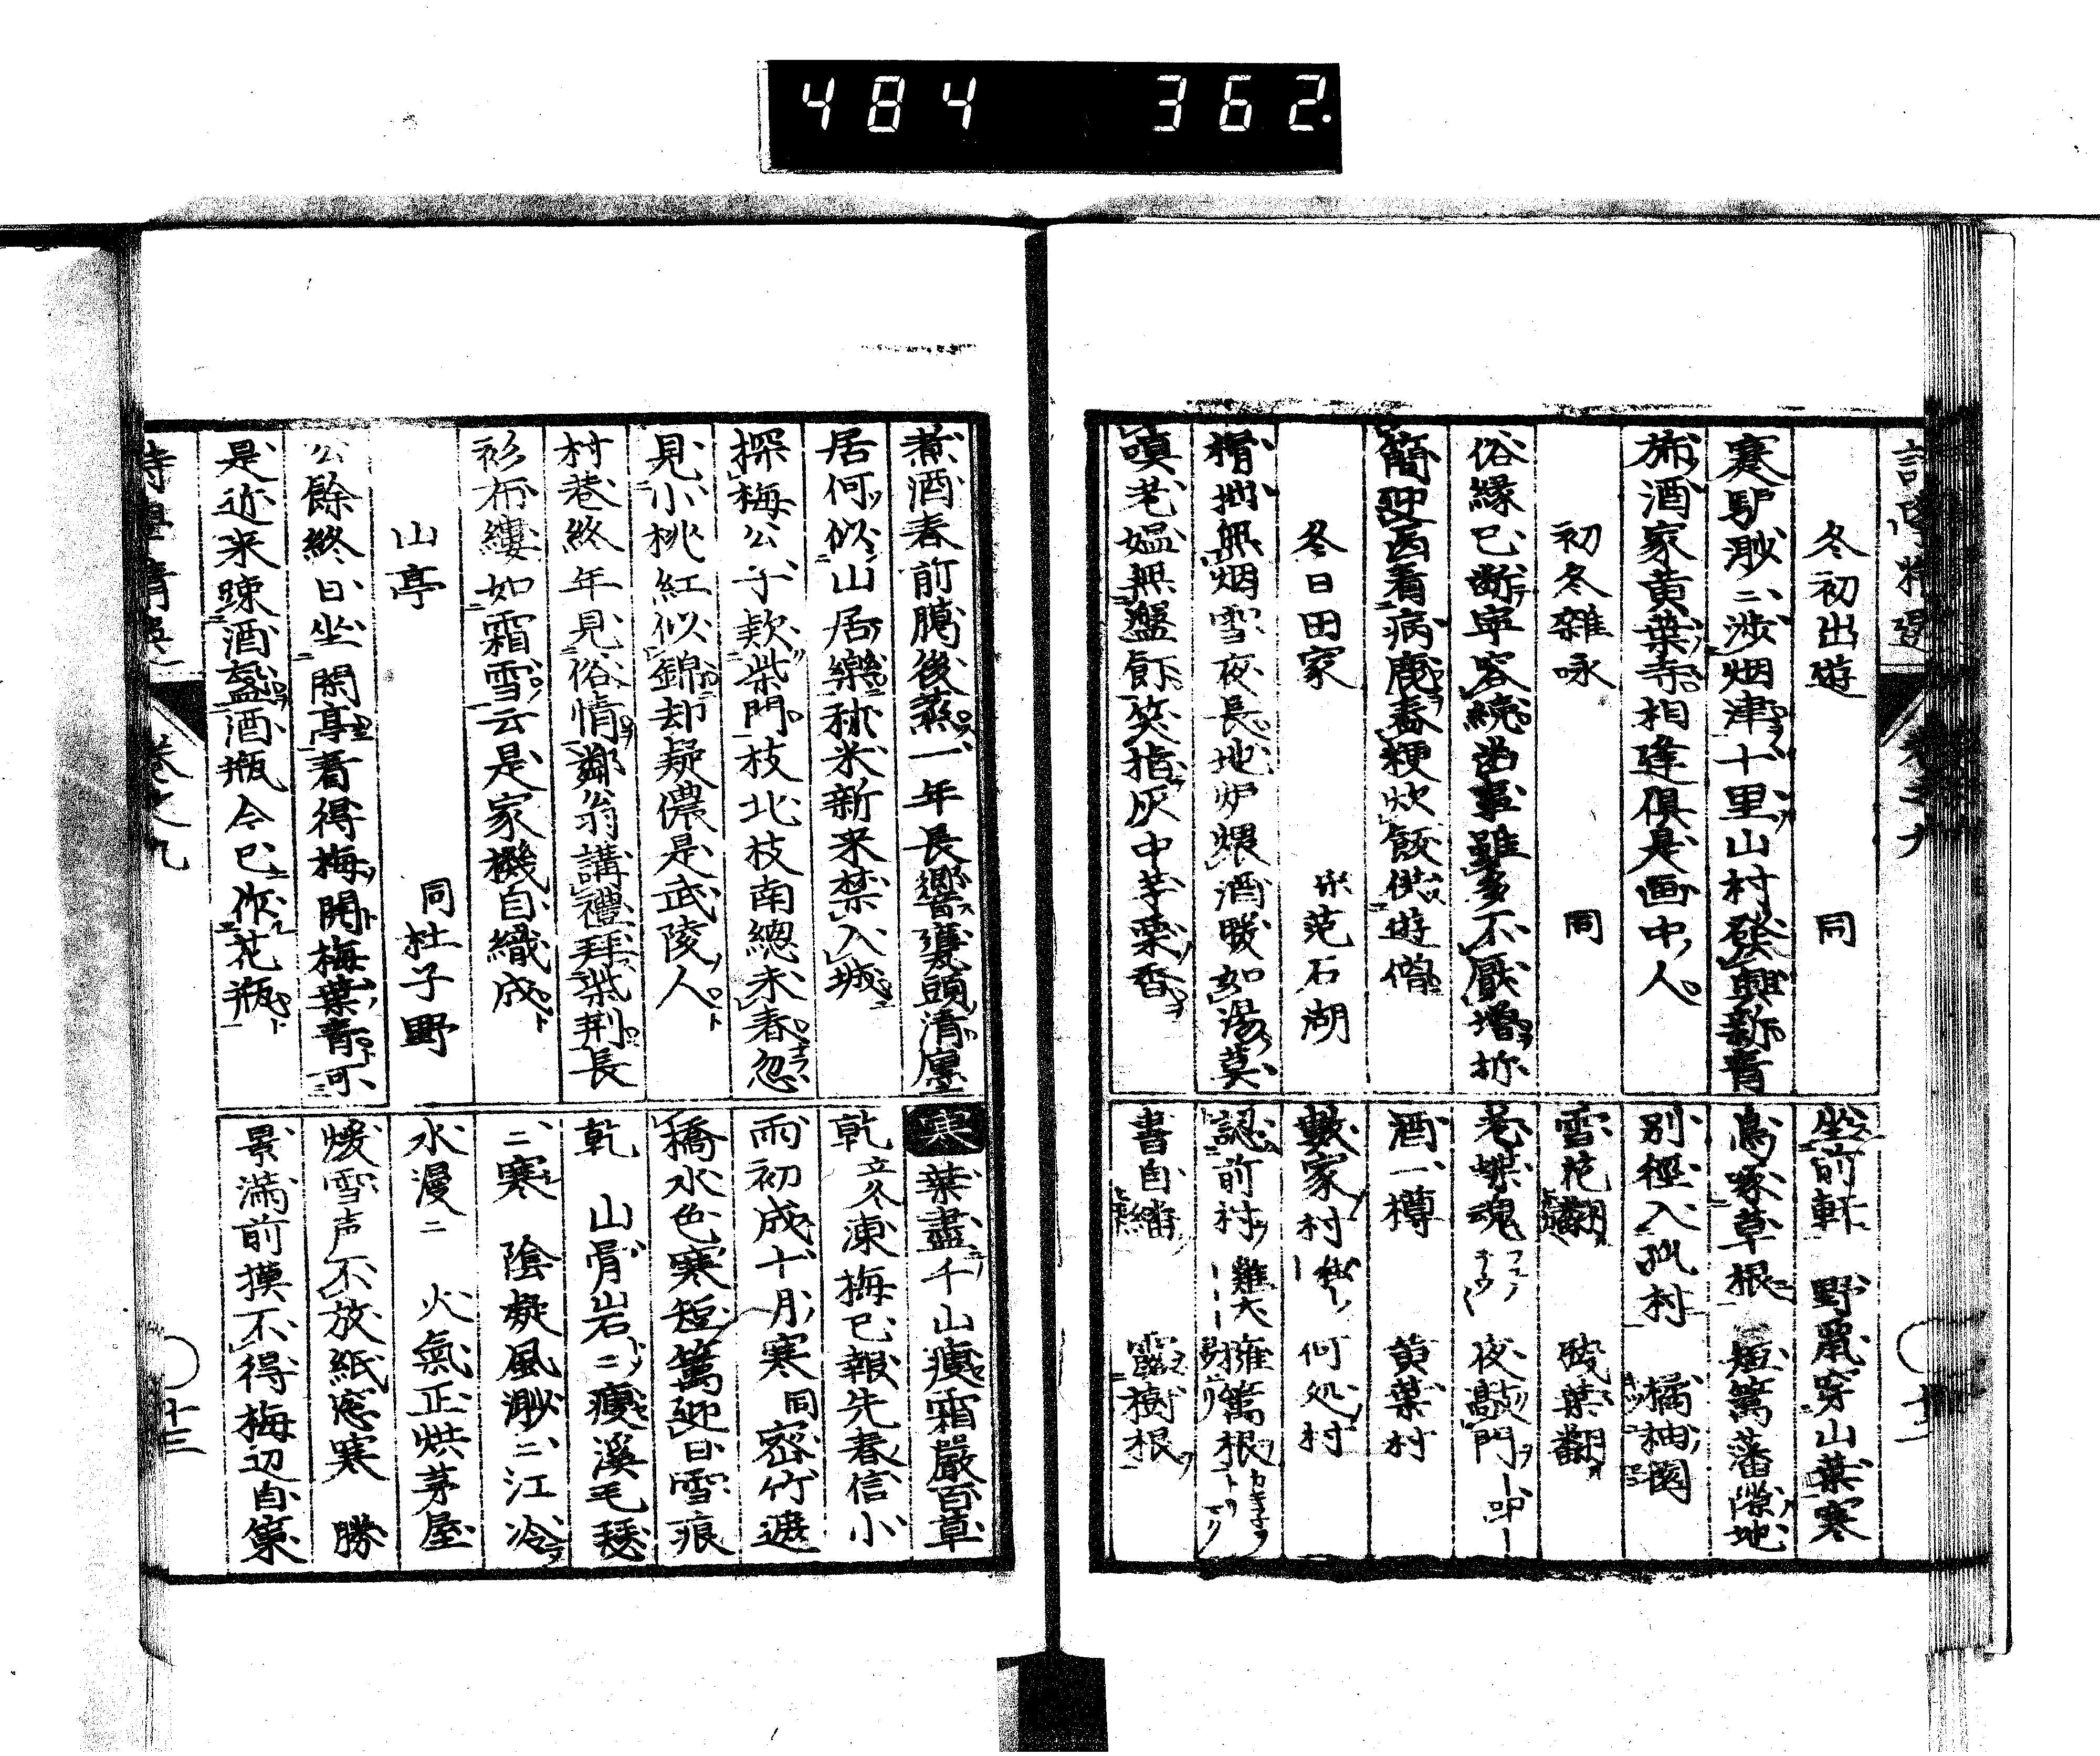 484 362.
冬初出遊 同
蹇驴渺二渉烟津十里山村發興新青
旆酒家黄葉寺相逢倶是画中人
初冬雑咏 同
俗縁已断寧容繞茜事雖多不厭増折
簡迎医看病鹿舂粳炊飯供遊僧
冬日田家 宋范石湖
榾柮無烟雪夜長地炉煨酒暖如湯莫
嗔老媼無盤飣笑指灰中芋栗香
坐前軒 野鼠穿山葉寒
鳥啄草根 短篱藩隙地
別径入孤村 橘柚園
雪花翻 残葉翻
老蝶魂 夜敲門
酒一樽 黄葉村
數家村 何処村
認前村 雞犬 擁篱根
書自繙 靈樹根
煮酒春前臘後蒸一年長饗甕頭清廛
居何似山居樂秫米新来禁入城
探梅公子款柴門枝北枝南總未春忽
見小桃紅似錦却疑儂是武陵人
村巷終年見俗情鄰翁講禮拜柴荆長
衫布縷如霜雪云是家機自織成
山亭 同杜子野
公餘終日坐閑亭看得梅開梅葉青可
是近来踈酒盞酒瓶今已作花瓶
寒 葉盡千山痩霜嚴百草
乾 立冬 凍梅已報先春信小
雨初成十月寒 同 密竹遮
橋水色寒短篱迎日雪痕
乾 山骨岩二痩溪毛瑟
二寒 陰凝風渺二江冷
水漫二 火氣正烘茅屋
煖雪声不放紙窓寒 勝
景満前摸不得梅辺自策
巻之九
十三